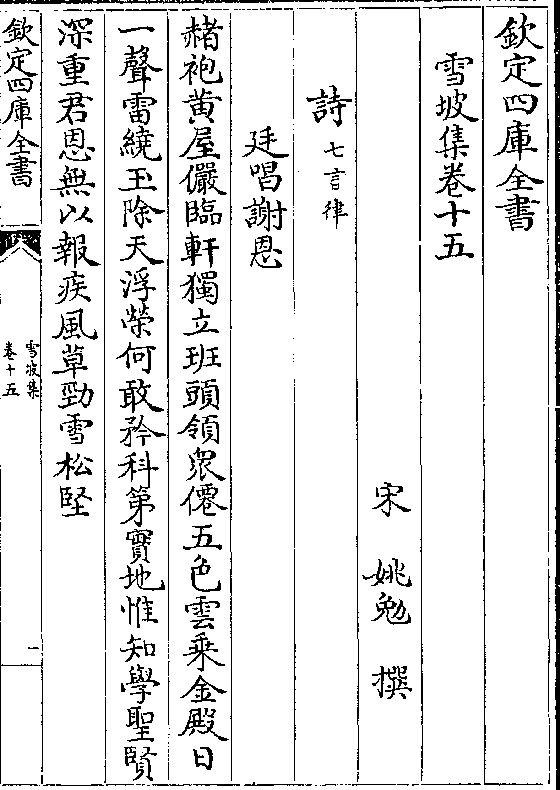 欽定四庫全書
雪坡集卷十五
宋　姚勉　撰
詩七言律
廷唱謝恩
赭袍黄屋儼臨軒獨立班頭領衆僊五色雲乘金殿日
一聲雷繞玉除天浮榮何敢矜科第實地惟知學聖賢
深重君恩無以報疾風草勁雪松堅
欽定四庫全書
雪坡集
卷十五
一